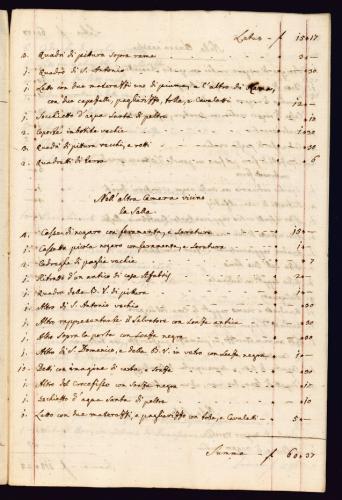 Latus - f 15.17
3. Quadri di pittura sopra rame 3 —
1. Quadro di S. Antonio — .30
1. Leto con due materassi uno di piuma, e l'altro di
con due capezalli, pagliarizzo, tolle, e Cavaletti 12 —
1. Sechietto d'aqua Santa di peltre — .10
2. Coperte imbotite vechie 1.20
2. Quadri di pitura vechi, e roti — .30
2. Quadretti di — 6
Nell'altra Camera vicino
la Salla
4. Casse di nogaro con feramenta, e serature 18 —
1. Cassetta picola nogaro con feramenta, e seratura 1 —
2. Cadreghe di paglia vechie — 7
1. Ritrato d'un antico di casa 2 —
1. Quadro della B. V. di pittura 1 —
1. Altro di S. Antonio vechio — .30
1. Altro rappresentante il Salvatore con antica — .30
1. Altro Sopra la porta con negra — .30
1. Altro di S. Domenico, e della B. V. in vetro con negra 1 —
10. Deti con imagine di carta, e — .30
1. Altro del Crocefisso con negra — .17
1. Sechietto d'aqua Santa di peltre — .10
1. Letto con due materassi, e pagliarizzo con tolle, e Cavaletti 5 —
Summa - f 60.37